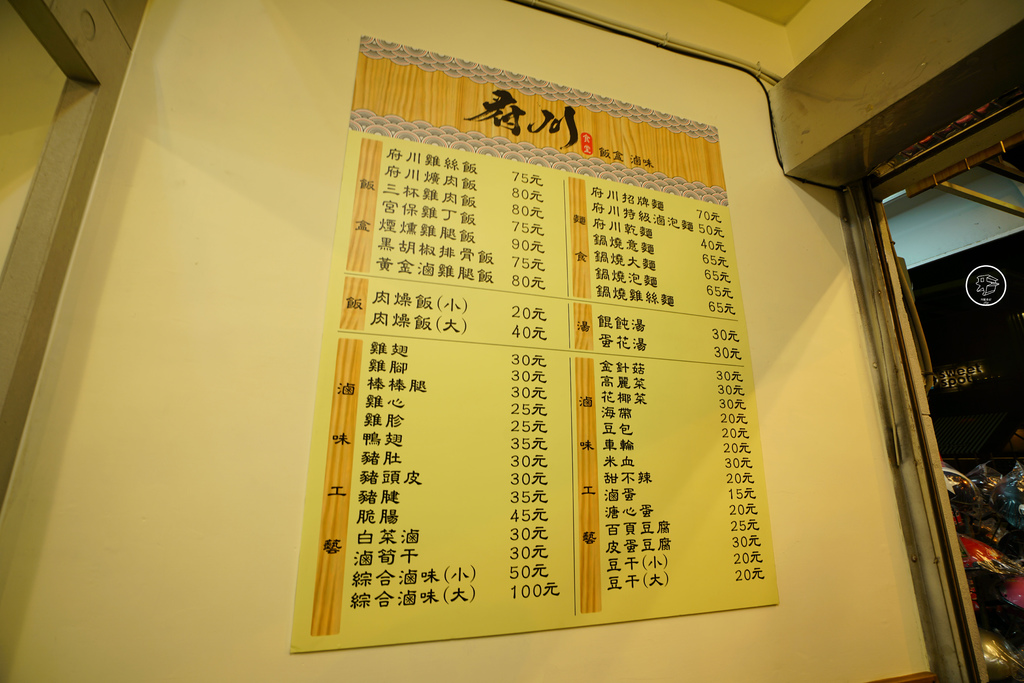 府川
食堂
飯盒 滷味
飯盒
府川雞絲飯 75元
府川爌肉飯 80元
三杯雞肉飯 80元
宮保雞丁飯 75元
煙燻雞腿飯 90元
黑胡椒排骨飯 75元
黃金滷雞腿飯 80元
飯
肉燥飯(小) 20元
肉燥飯(大) 40元
滷味工藝
雞翅 30元
雞腳 30元
棒棒腿 30元
雞心 25元
雞胗 25元
鴨翅 35元
豬肚 30元
豬頭皮 30元
豬腱 35元
脆腸 45元
白菜滷 30元
滷筍干 30元
綜合滷味(小) 50元
綜合滷味(大) 100元
麵食
府川招牌麵 70元
府川特級滷泡麵 50元
府川乾麵 40元
鍋燒意麵 65元
鍋燒大麵 65元
鍋燒泡麵 65元
鍋燒雞絲麵 65元
湯
餛飩湯 30元
蛋花湯 30元
滷味工藝
金針菇 30元
高麗菜 30元
花椰菜 30元
海帶 20元
豆包 20元
車輪 20元
米血 30元
甜不辣 20元
滷蛋 15元
溏心蛋 20元
百頁豆腐 25元
皮蛋豆腐 30元
豆干(小) 20元
豆干(大) 20元
sweet
spot